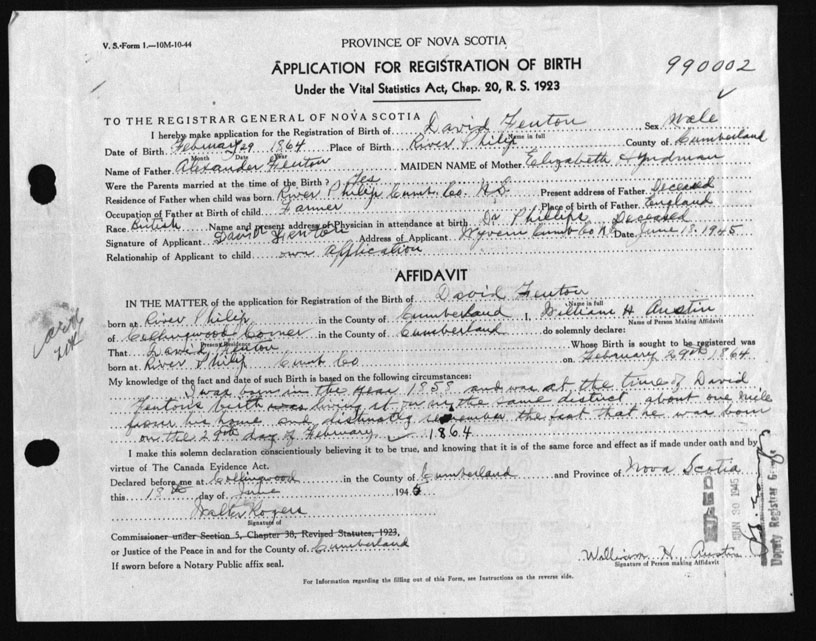 V. S.-Form 1.—10M-10-44
PROVINCE OF NOVA SCOTIA
APPLICATION FOR REGISTRATION OF BIRTH
990002
Under the Vital Statistics Act, Chap. 20, R. S. 1923
TO THE REGISTRAR GENERAL OF NOVA SCOTIA
I hereby make application for the Registration of Birth of David Fenton Sex Male
Name in full
Date of Birth February 29 1864 Place of Birth River Philip County of Cumberland
Month Date Year
Name of Father Alexander Fenton MAIDEN NAME of Mother Elizabeth Hyndman
Were the Parents married at the time of the Birth? Yes
Residence of Father when child was born River Philip Cumb. Co. N.S. Present address of Father Deceased
Occupation of Father at Birth of child Farmer Place of birth of Father England
Race British Name and present address of Physician in attendance at birth Dr Phillips Deceased
Signature of Applicant David Fenton Address of Applicant Wyvern Cumb Co N.S. Date June 18. 1945
Relationship of Applicant to child own Application
AFFIDAVIT
IN THE MATTER of the application for Registration of the Birth of David Fenton
Name in full
born at River Philip in the County of Cumberland I, William H. Austin
Name of Person Making Affidavit
of Collingwood Corner in the County of Cumberland do solemnly declare:
Present Residence
That David Fenton Whose Birth is sought to be registered was
born at River Philip Cumb Co on February 29th 1864
My knowledge of the fact and date of such Birth is based on the following circumstances:
I was born in the year 1858 and was at the time of David
Fenton's birth was living in the same district, about one mile
from his home and distinctly remember the fact that he was born
on the 29th day of February 1864
I make this solemn declaration conscientiously believing it to be true, and knowing that it is of the same force and effect as if made under oath and by
virtue of The Canada Evidence Act.
Declared before me at Collingwood in the County of Cumberland and Province of Nova Scotia
this 18th day of June 1945
Walter Rogers
Signature of
Commissioner under Section 5, Chapter 38, Revised Statutes, 1923,
or Justice of the Peace in and for the County of Cumberland
If sworn before a Notary Public affix seal.
William H. Austin
Signature of Person making Affidavit
For Information regarding the filling out of this Form, see Instructions on the reverse side.
JUN 30 1945
Deputy Registrar General